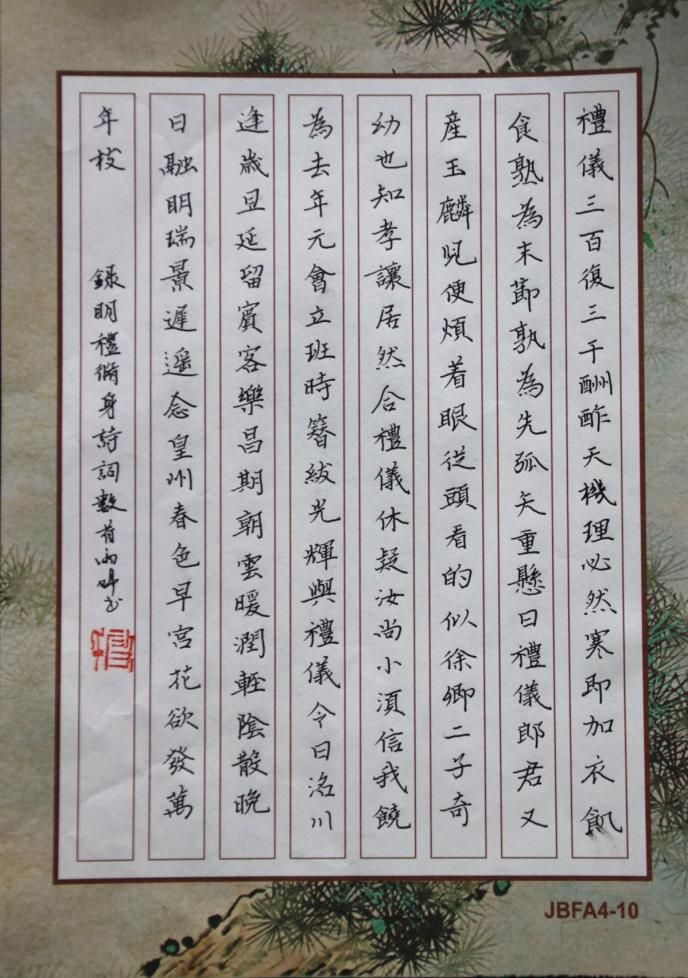 禮儀三百復三千酬酢天機理必然寒即加衣飢
食熟為末節孰為先弧矢重懸日禮儀郎君又
産玉麟児便煩着眼從頭看的似徐卿二子奇
幼也知孝讓居然合禮儀休疑汝尚小湏信我饒
為去年元會立班時簪紱光輝與禮儀今日洛川
逢歳旦延留賓客樂昌期朝雲暖潤輕陰散晩
日融明瑞景遲遥念皇州春色早宮花欲發萬
年枝
録明禮脩身詩詞數首
JBFA4-10